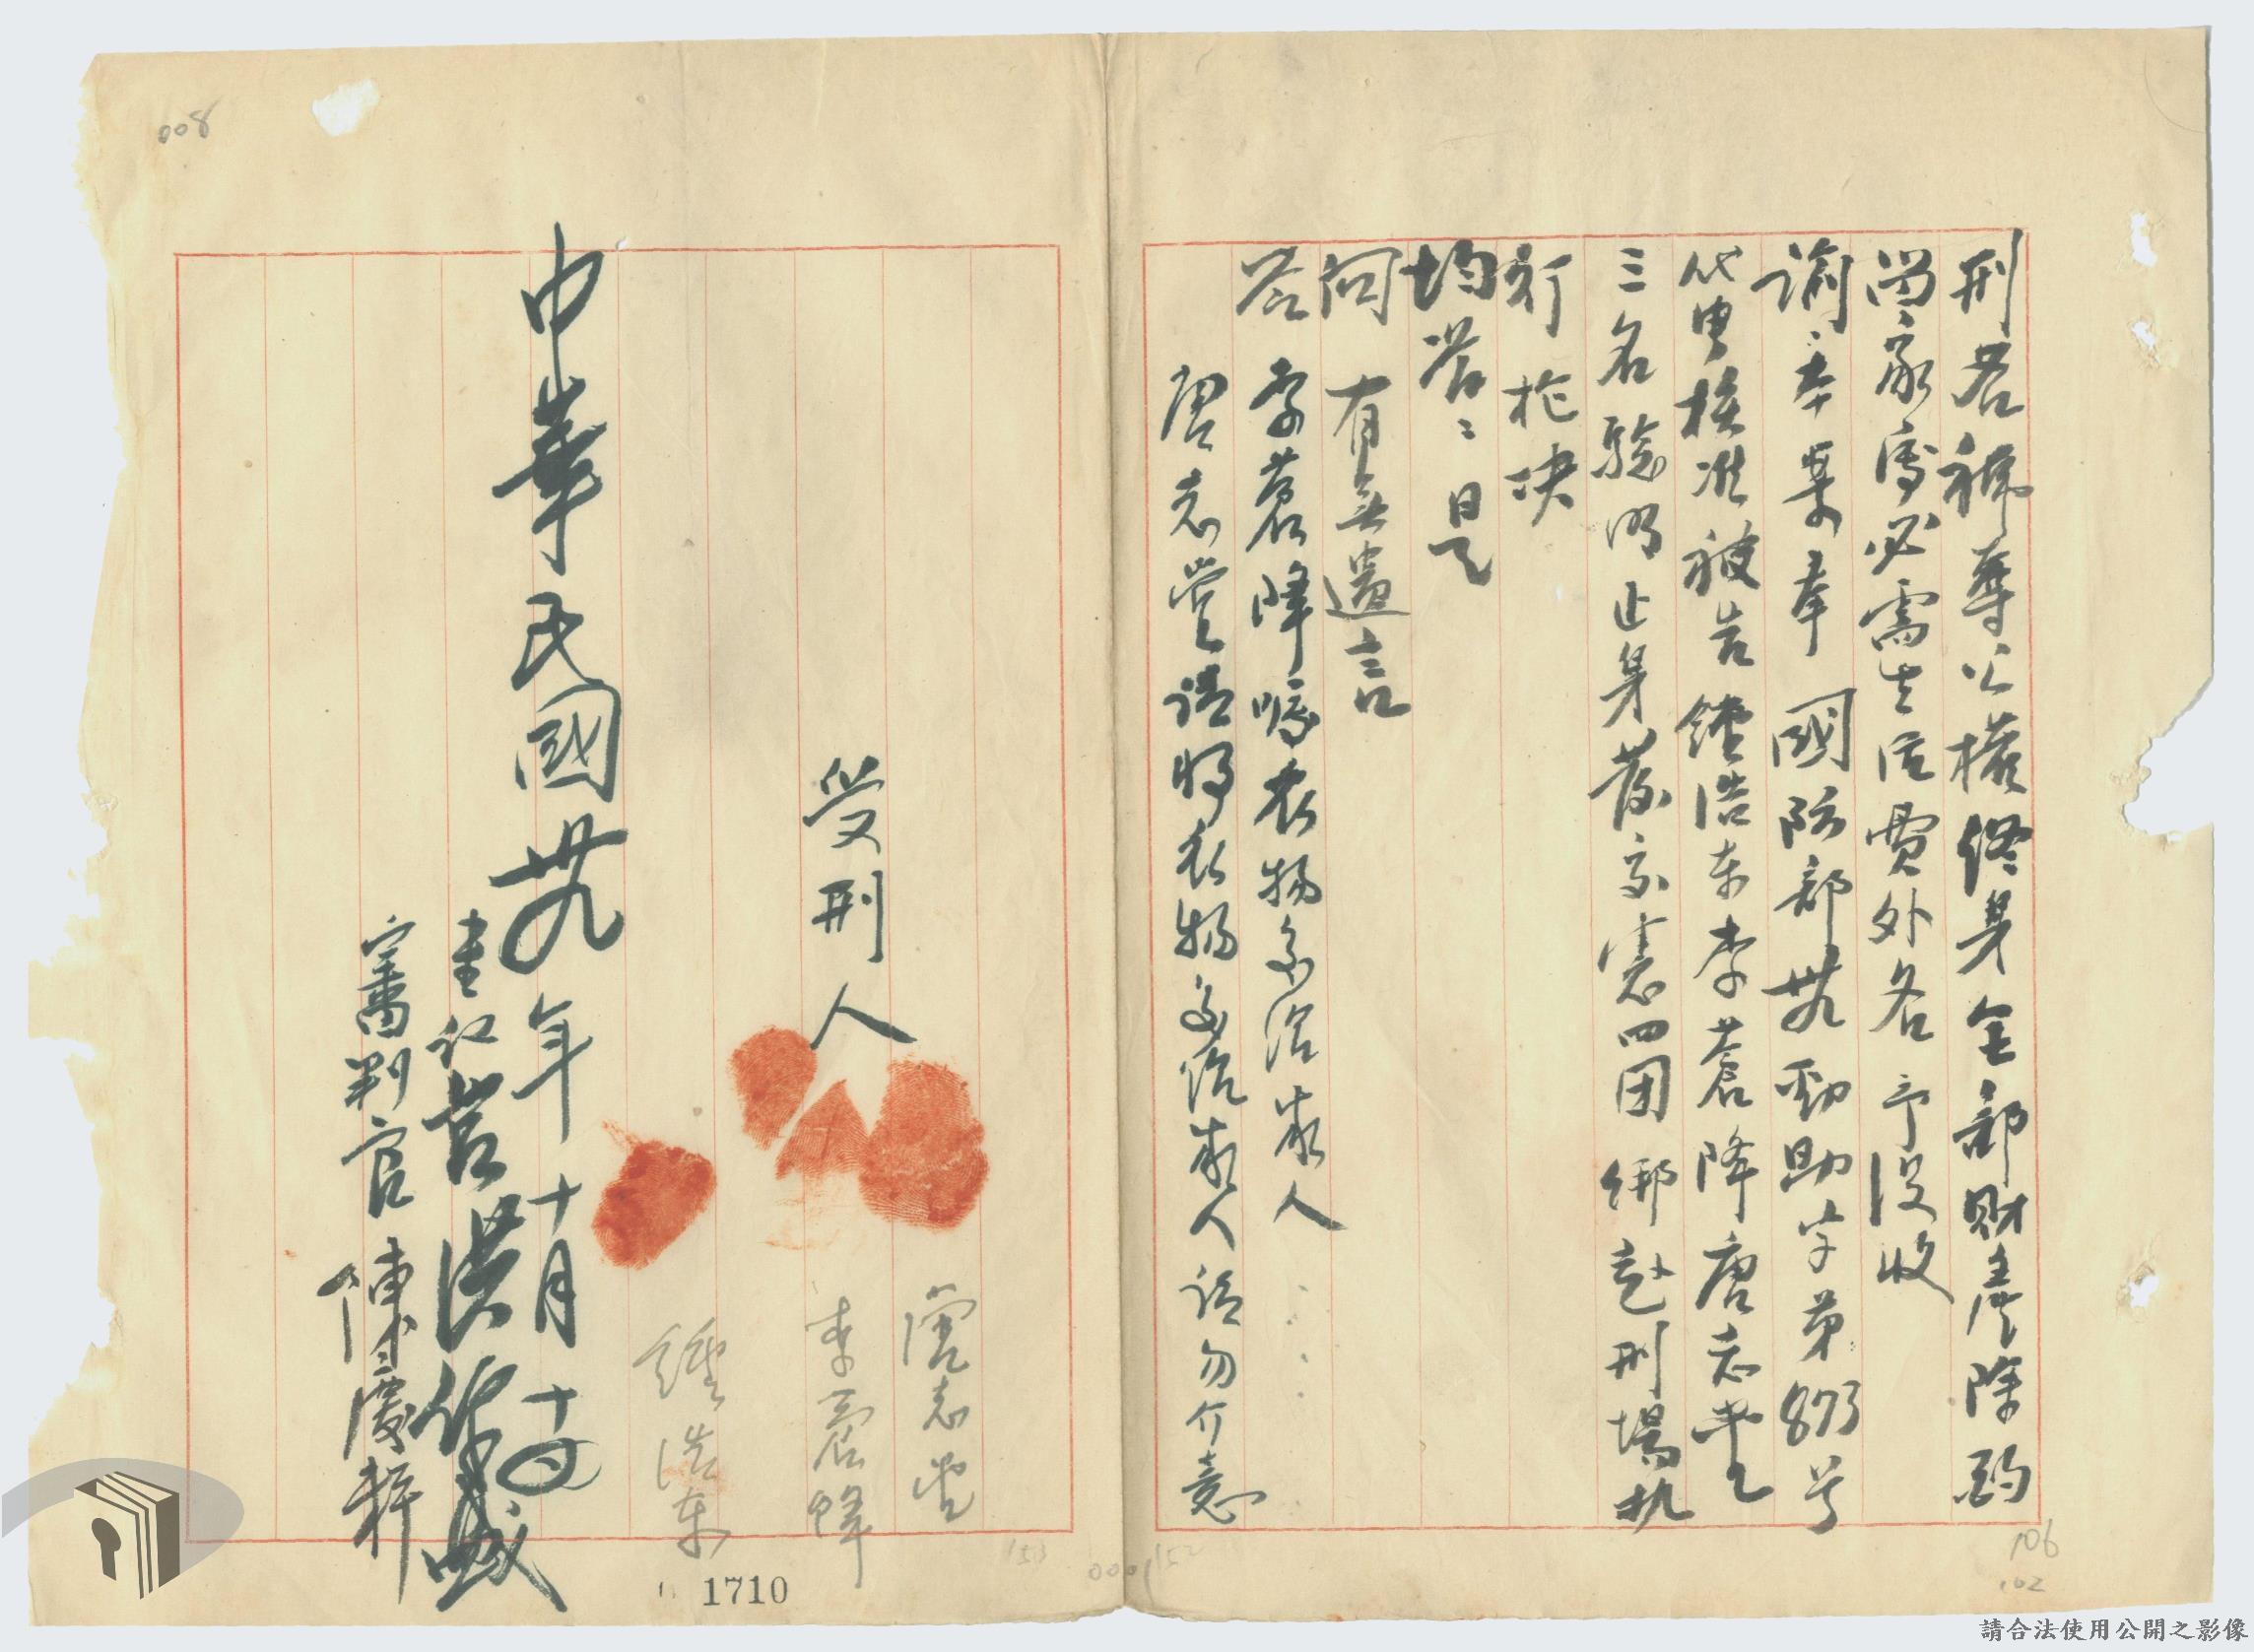 刑各褫奪公權終身全部財產除酌
留家屬必需生活費外各予沒收
諭本案奉 國防部卅九勁助字第873号
代電核准被告鍾浩东李蒼降唐志堂
三名驗明正身發交憲四团綁赴刑場执
行枪决
均答:是
问 有無遺言
答 李蒼降囑衣物系给家人
唐志堂請將衣物交給家人請勿介意
受刑人
唐志堂
李蒼降
鍾浩东
中華民國卅九年十月十四日
書記官 洪
審判官 陳慶粹
008
106
102
152
153
000
1710
請合法使用公開之影像